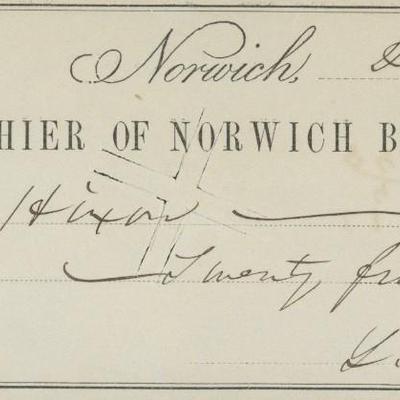 Norwich,
HIER OF NORWICH B
Hixon
Twenty